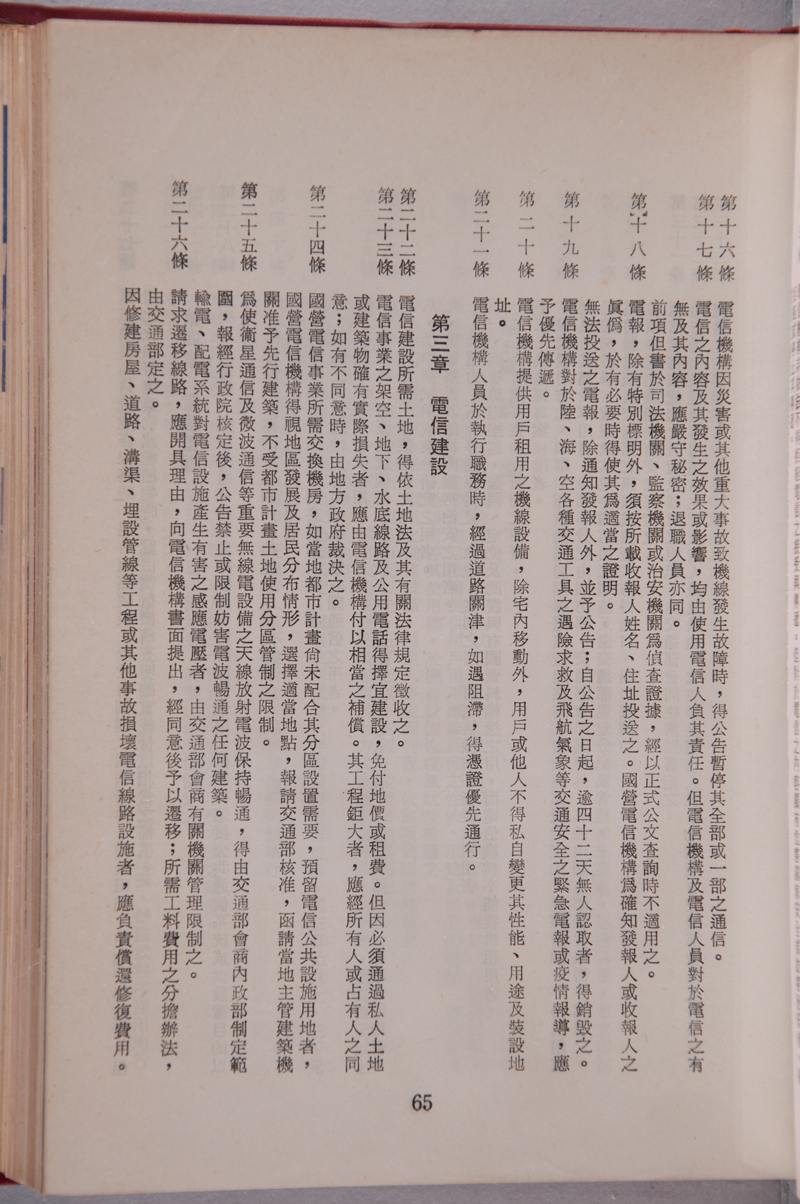 第十六條 電信機構因災害或其他重大事故致機線發生故障時，得公告暫停其全部或一部之通信。
第十七條 電信之內容及其發生之效果或影響，均由使用電信人負其責任。但電信機構及電信人員對於電信之有
無及其內容，應嚴守秘密；退職人員亦同。
前項但書於司法機關、監察機關或治安機關爲偵查證據，經以正式公文查詢時不適用之。
第十八條 電報，除有特別標明外，須按所載收報人姓名、住址投送之。國營電信機構爲確知發報人或收報人之
眞僞，於有必要時得使其爲適當之證明。
無法投送之電報，除通知發報人外，並予公告；自公告之日起，逾四十二天無人認取者，得銷毀之。
第十九條 電信機構對於陸、海、空各種交通工具之遇險求救及飛航氣象等交通安全之緊急電報或疫情報導，應
予優先傳遞。
第二十條 電信機構提供用戶租用之機線設備，除宅內移動外，用戶或他人不得私自變更其性能、用途及裝設地
址。
第二十一條 電信機構人員於執行職務時，經過道路關津，如遇阻滯，得憑證優先通行。
第三章 電信建設
第二十二條 電信建設所需土地，得依土地法及其有關法律規定徵收之。
第二十三條 電信事業之架空、地下、水底線路及公用電話得擇宜建設，免付地價或租費。但因必須通過私人土地
或建築物確有實際損失者，應由電信機構付以相當之補償。其工程鉅大者，應經所有人或占有人之同
意；如有不同意時，由地方政府裁決之。
第二十四條 國營電信事業所需交換機房，如當地都市計畫尙未配合其分區設置需要，預留電信公共設施用地者，
國營電信機構得視地區發展及居民分布情形，選擇適當地點，報請交通部核准，函請當地主管建築機
關准予先行建築，不受都市計畫土地使用分區管制之限制。
第二十五條 爲使衞星通信及微波通信等重要無線電設備之天線放射電波保持暢通，得由交通部會商內政部制定範
圍，報經行政院核定後，公告禁止或限制妨害電波暢通之任何建築。
輸電、配電系統對電信設施產生有害之感應電壓者，由交通部會商有關機關管理限制之。
第二十六條 請求遷移線路，應開具理由，向電信機構書面提出，經同意後予以遷移；所需工料費用之分擔辦法，
由交通部定之。
因修建房屋、道路、溝渠、埋設管線等工程或其他事故損壞電信線路設施者，應負責償還修復費用。
65